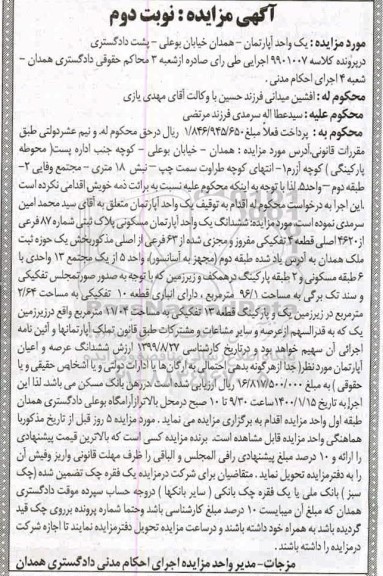 آگهی مزایده : نوبت دوم
مورد مزایده : یک واحد آپارتمان - همدان خیابان بوعلی - پشت دادگستری
درپرونده کلاسه ۹۹۰۱۰۰۷ اجرایی طی رای صادره ازشعبه ۳ محاکم حقوقی دادگستری همدان -
شعبه ۴ اجرای احکام مدنی .
محکوم له : افشین میدانی فرزند حسین با وکالت آقای مهدی یازی
محکوم علیه : سیدعطا اله سرمدی فرزند مرتضی
محکوم به : پرداخت فعلاً مبلغ ۱/۸۴۶/۹۴۵/۶۵۰ ریال درحق محکوم له. و نیم عشردولتی طبق
مقررات قانونی.آدرس مورد مزایده : همدان - خیابان بوعلی - کوچه جنب اداره پست( محوطه
پارکینگی ) کوچه آزرم۱- انتهای کوچه طراوت سمت چپ - نبش ۱۸ متری - مجتمع وفایی ۲-
طبقه دوم -واحد۵. لذا با توجه به اینکه محکوم علیه نسبت به برائت ذمه خویش اقدامی نکرده است
.این اجرا به درخواست محکوم له اقدام به توقیف یک واحد آپارتمان متعلق به آقای سید محمد امین
سرمدی نموده است.مورد مزایده: ششدانگ یک واحد آپارتمان مسکونی پلاک ثبتی شماره ۸۷ فرعی
از ۴۶۲ اصلی قطعه ۴ تفکیکی مفروز و مجزی شده از ۶۳ فرعی از اصلی مذکوربخش یک حوزه ثبت
ملک همدان به آدرس یاد شده طبقه دوم (مجهز به آسانسور) واحد ۵ از یک مجتمع ۱۳ واحدی با
۶ طبقه مسکونی و ۲ طبقه پارکینگ درهمکف و زیرزمین که با توجه به صدور صورتمجلس تفکیکی
و سند تک برگی به مساحت ۹۶/۱ مترمربع ، دارای انباری قطعه ۱۰ تفکیکی به مساحت ۲/۶۴
مترمربع در زیرزمین یک و پارکینگ قطعه ۱۳ تفکیکی به مساحت ۱۱/۰۴ مترمربع واقع درزیرزمین
یک که به قدرالسهم ازعرصه و سایر مشاعات و مشترکات طبق قانون تملک آپارتمانها و آئین نامه
اجرائی آن سهیم خواهد بود و درتاریخ کارشناسی ۱۳۹۹/۸/۲۷ ارزش ششدانگ عرصه و اعیان
آپارتمان مورد نظر( جدا ازهرگونه بدهی احتمالی به ارگان ها یا ادارات دولتی و یا اشخاص حقیقی و یا
حقوقی ) به مبلغ ۱۶/۸۱۷/۵۰۰/۰۰۰ ریال ارزیابی شده است .دررهن بانک مسکن می باشد. لذا این
اجرا به تاریخ ۱۴۰۰/۱/۱۵ ساعت ۹/۳۰ تا ۱۰ صبح درمحل بالاتر ازآرامگاه بوعلی دادگستری همدان
طبقه اول واحد مزایده اقدام به برگزاری مزایده می نماید . مورد مزایده ۵ روز قبل از تاریخ مذکوربا
هماهنگی واحد مزایده قابل مشاهده است. برنده مزایده کسی است که بالاترین قیمت پیشنهادی
را ارائه و ۱۰ درصد مبلغ پیشنهادی رافی المجلس و الباقی را ظرف مهلت قانونی واریز وفیش آن
را به دفترمزایده تحویل نماید . متقاضیان برای شرکت درمزایده یک فقره چک تضمین شده (چک
سبز ) بانک ملی یا یک فقره چک بانکی ( سایر بانکها ) دروجه حساب سپرده موقت دادگستری
همدان که مبلغ آن میبایست ۱۰ درصد مبلغ کارشناسی باشد وحتما شماره پرونده برروی چک قید
گردیده باشد به همراه خود داشته باشند و درساعت مزایده تحویل دفترمزایده نمایند تا اجازه شرکت
درمزایده را داشته باشند.
مزجات- مدیر واحد مزایده اجرای احکام مدنی دادگستری همدان